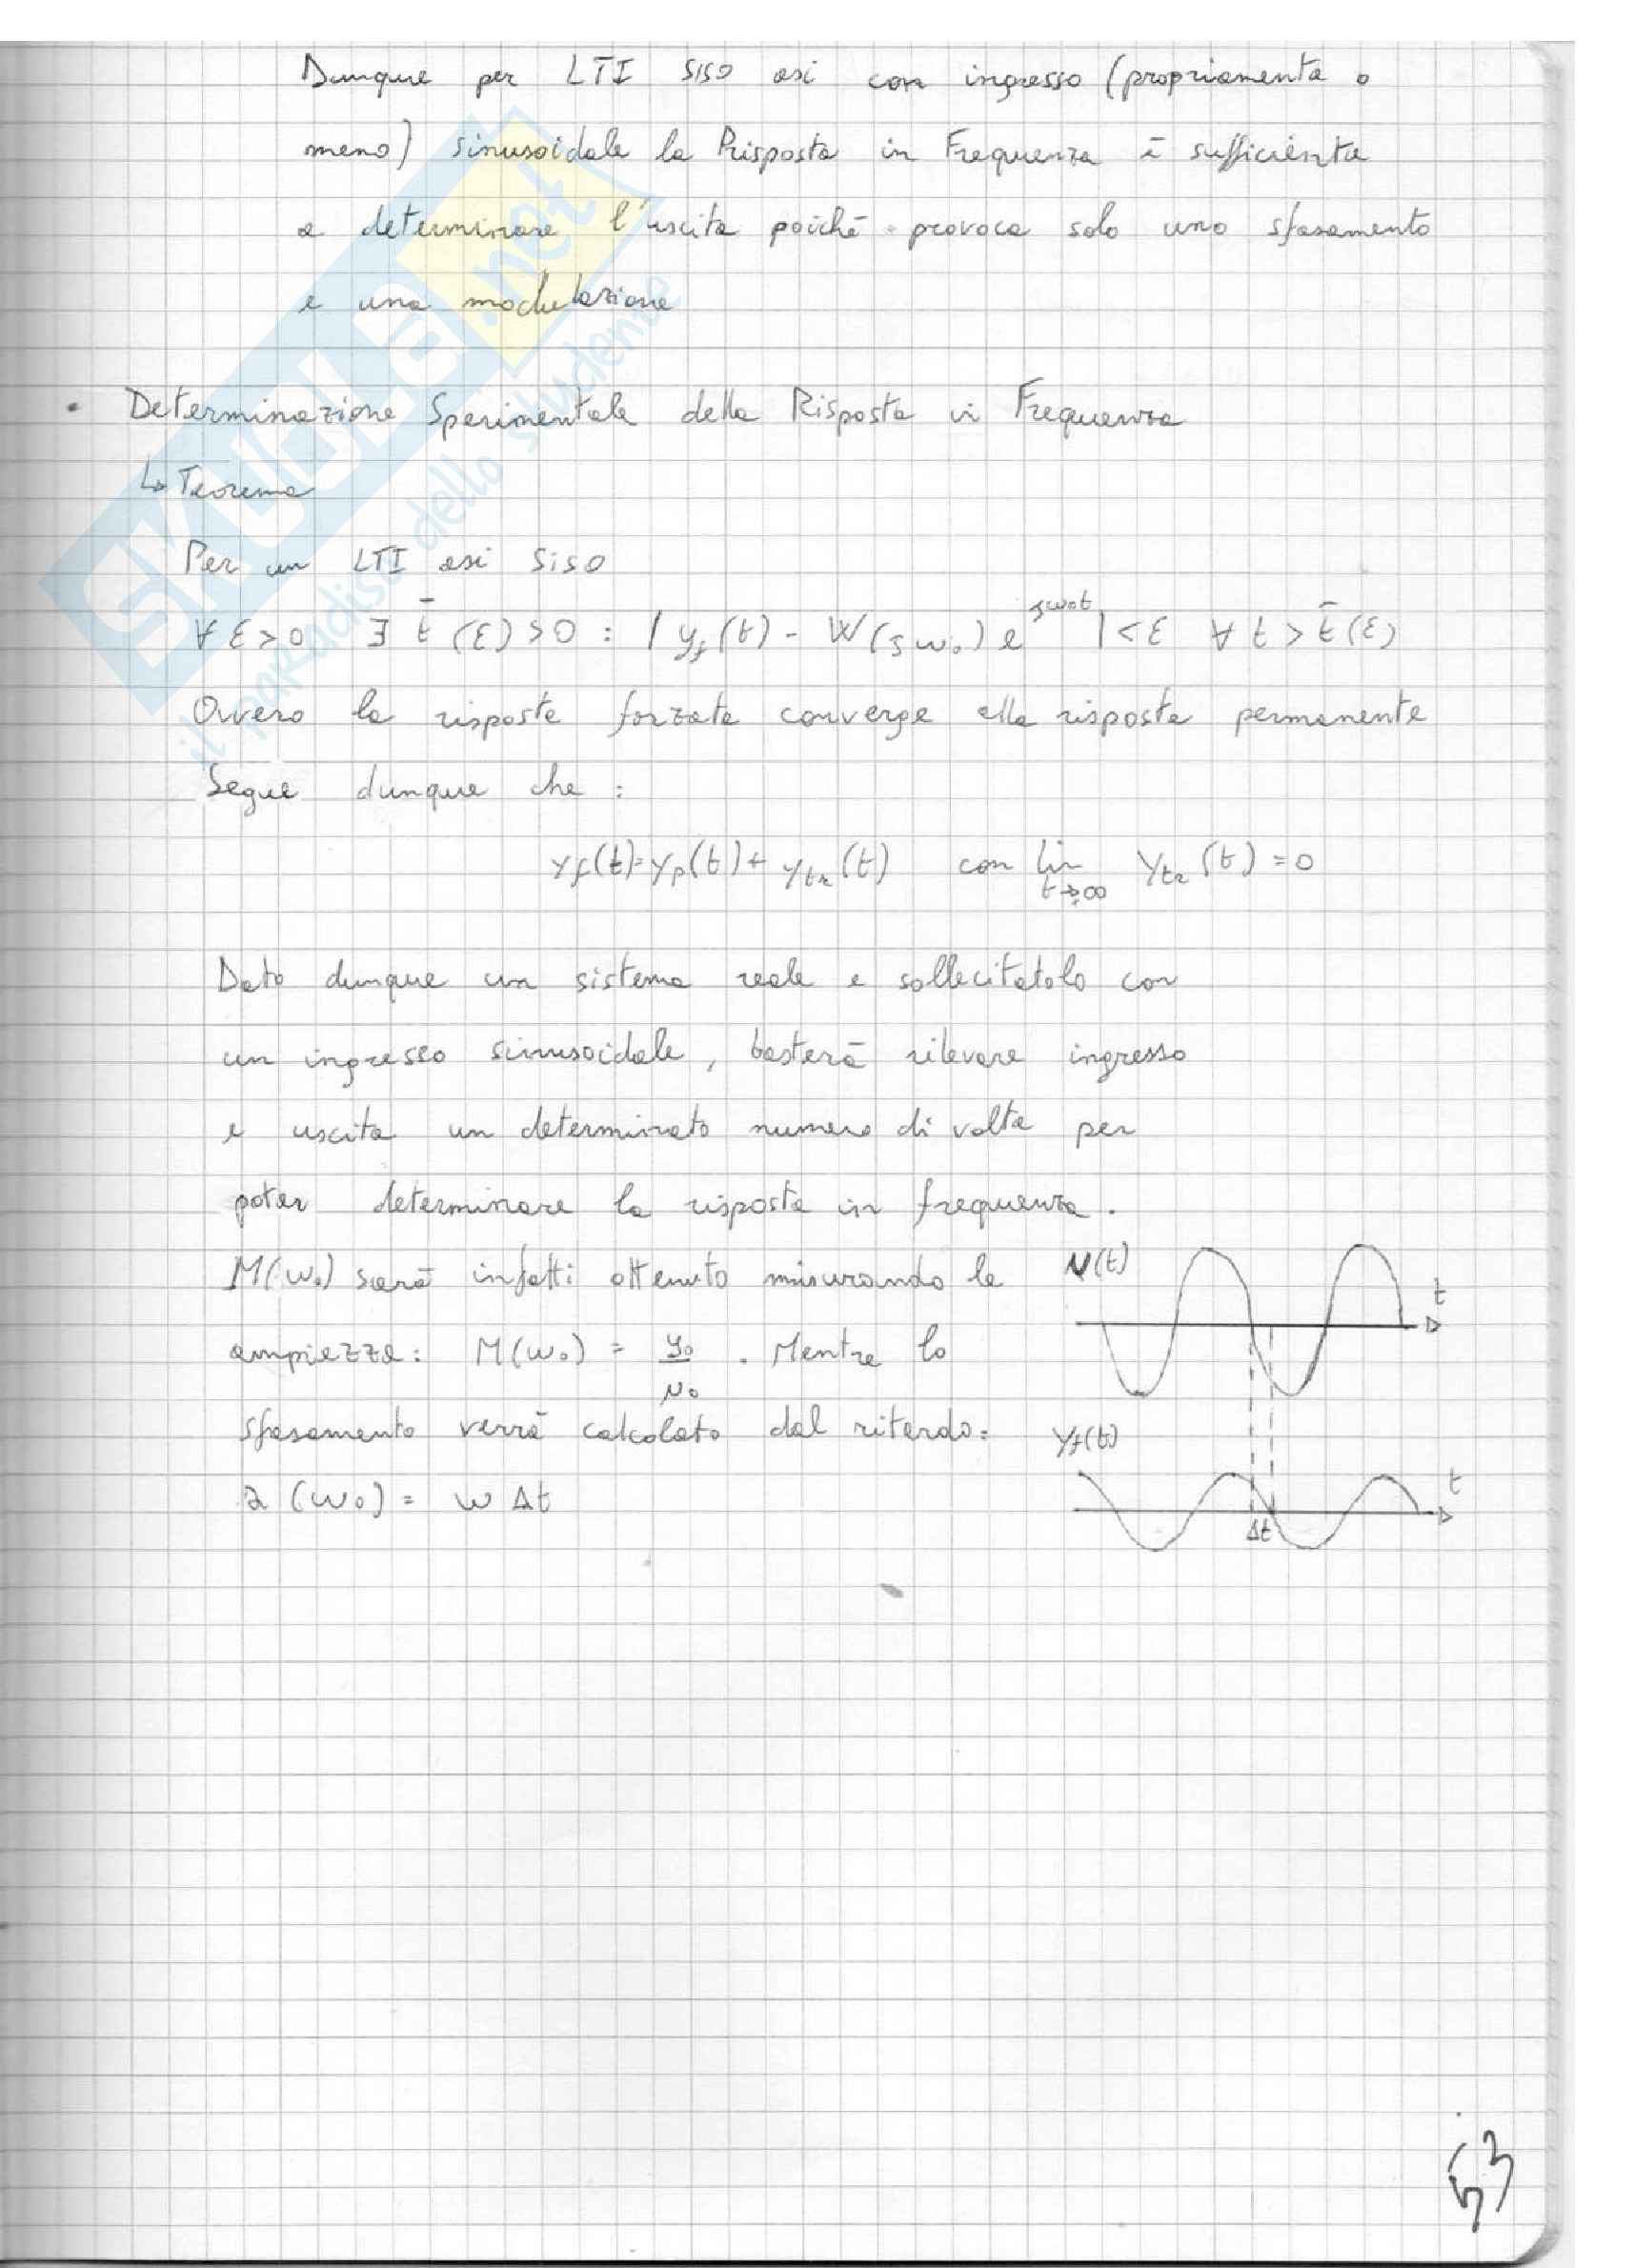 Dunque per LTI SISO asi con ingresso (propriamente o
meno) sinusoidale la Risposta in Frequenza è sufficiente
a determinare l'uscita poichè provoca solo uno sfasamento
e una modulazione
• Determinazione Sperimentale della Risposta in Frequenza
↳ Teorema
Per un LTI asi SISO
∀ ε > 0 ∃ t̄ (ε) > 0 : | yf(t) - W(jω₀) e^jω₀t | < ε ∀ t > t̄(ε)
Ovvero la risposta forzata converge alla risposta permanente
Segue dunque che :
yf(t) = yp(t) + ytr(t) con lim t→∞ ytr(t) = 0
Dato dunque un sistema reale e sollecitatolo con
un ingresso sinusoidale, basterà rilevare ingresso
e uscita un determinato numero di volte per
poter determinare la risposta in frequenza.
M(ω₀) sarà infatti ottenuto misurando le
ampiezze: M(ω₀) = y₀/u₀ . Mentre lo
sfasamento verrà calcolato dal ritardo:
α(ω₀) = ω Δt
u(t)
t
yf(t)
t
Δt
53
SKUOLA.net
il paradiso dello studente